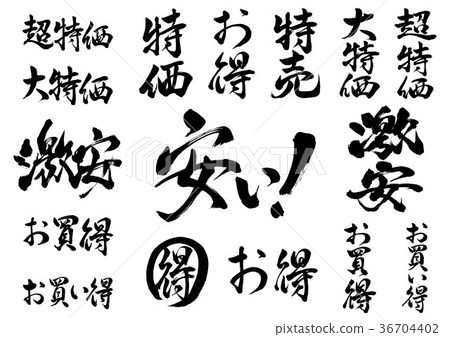 超特価
大特価
激安
お買得
お買い得
特価
お得
特売
安い!
得
お得
大特価
超特価
激安
お買得
お買い得
36704402